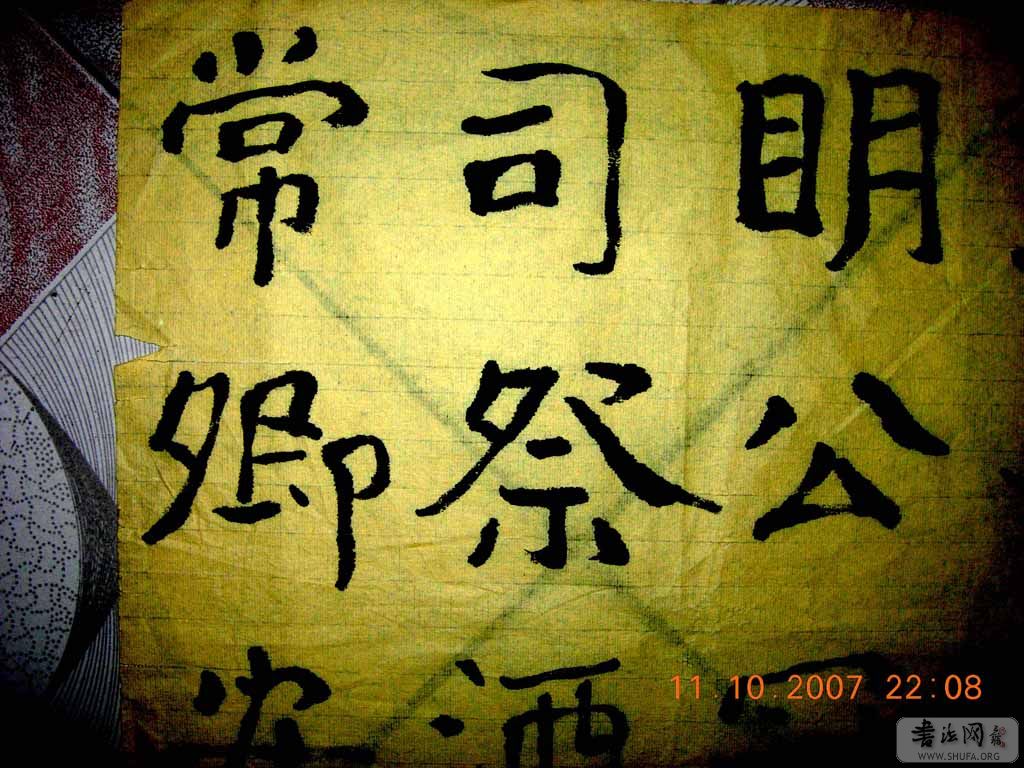 明公
司祭酒
常卿
11.10.2007 22:08
書法网
WWW.SHUFA.ORG